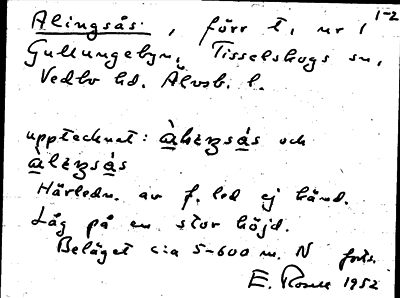 1-2
Alingsås, förr t. nr 1
Gullungebyn, Tisselskogs sn,
Vedbo hd. Älvsb. l.
upptecknat: och
Härledn. av f. led ej känd.
Låg på en stor höjd.
Beläget c:a 5-600 m. N forts.
E. 1952